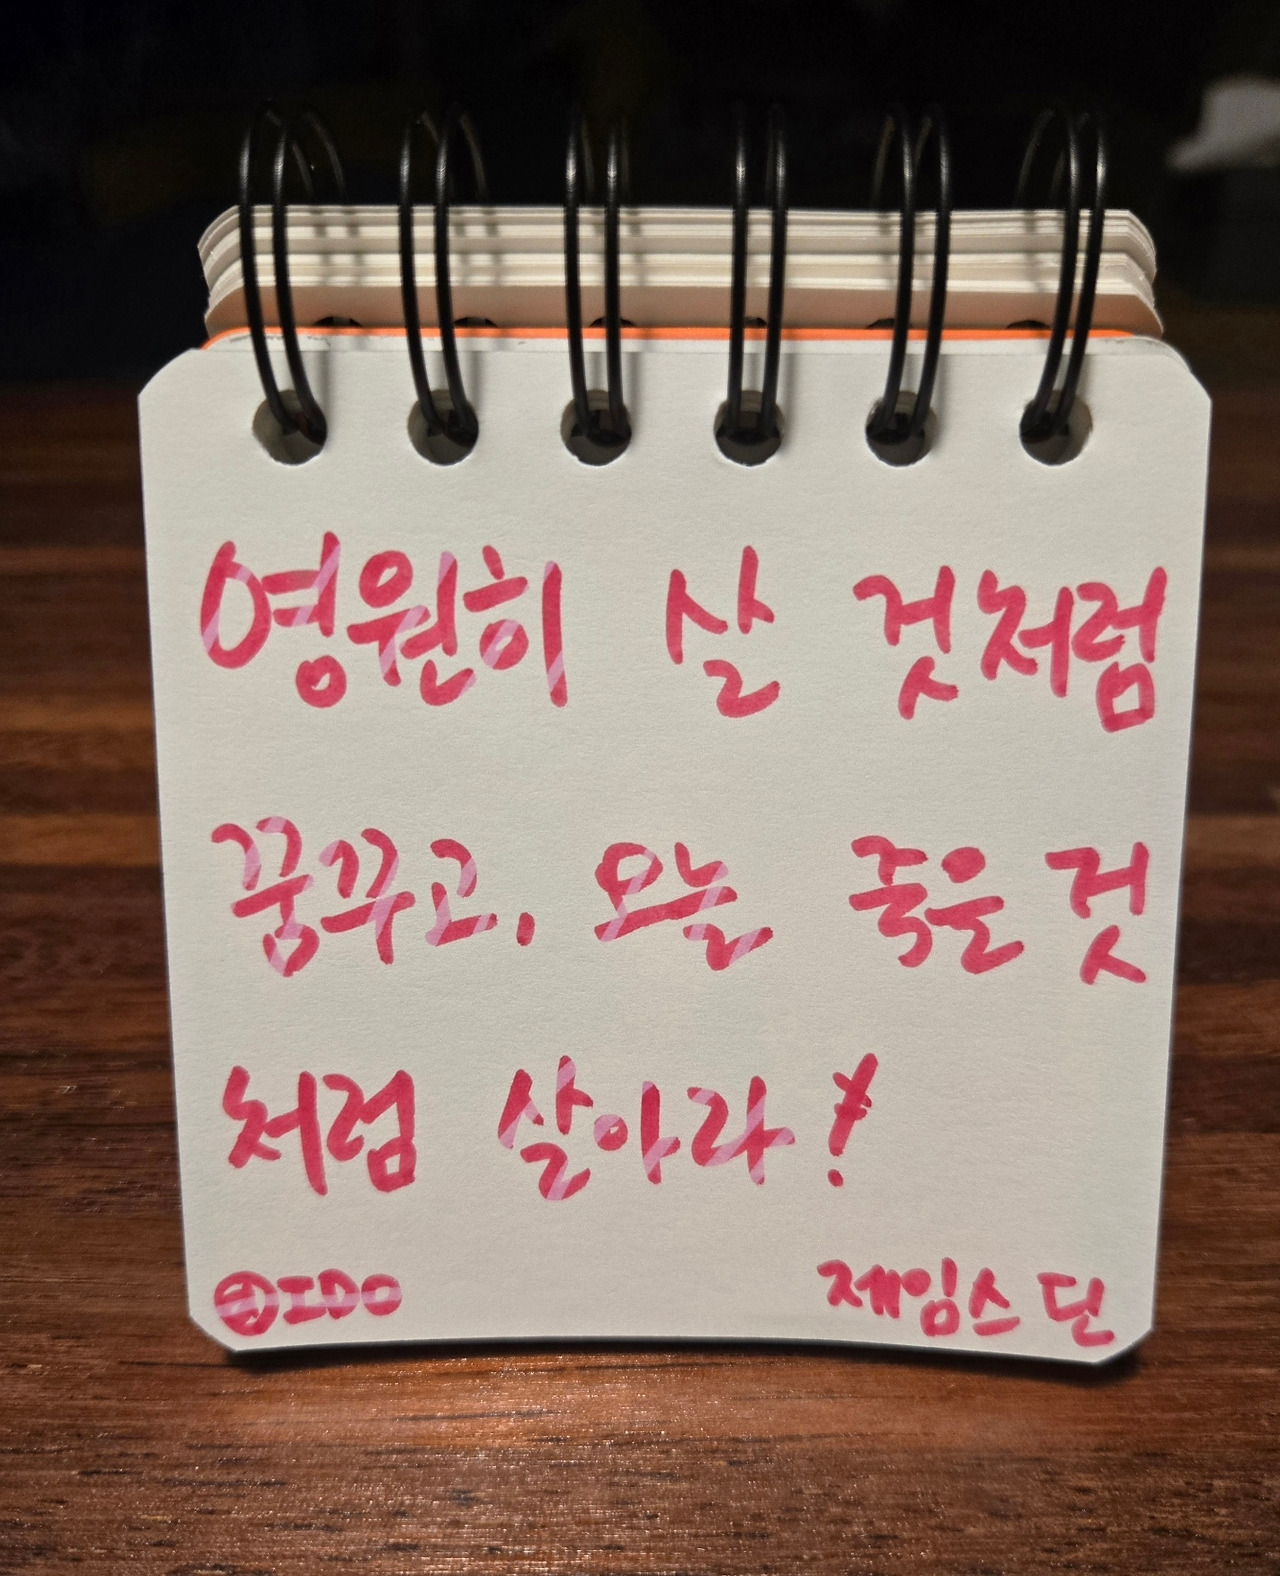 영원히 살 것처럼
꿈꾸고, 오늘 죽은 것
처럼 살아라!
IDO 제임스 딘